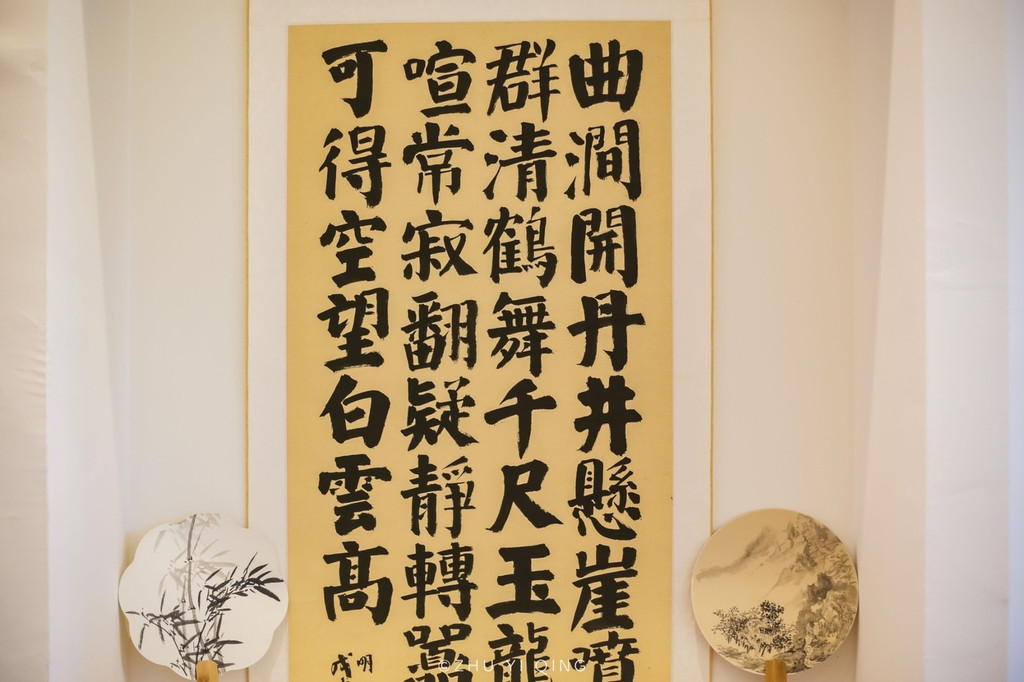 曲澗開丹井懸崖噴
群清鶴舞千尺玉龍
喧常寂翻疑靜轉嚻
可得空望白雲高
明
戊
©ZHU YI QING